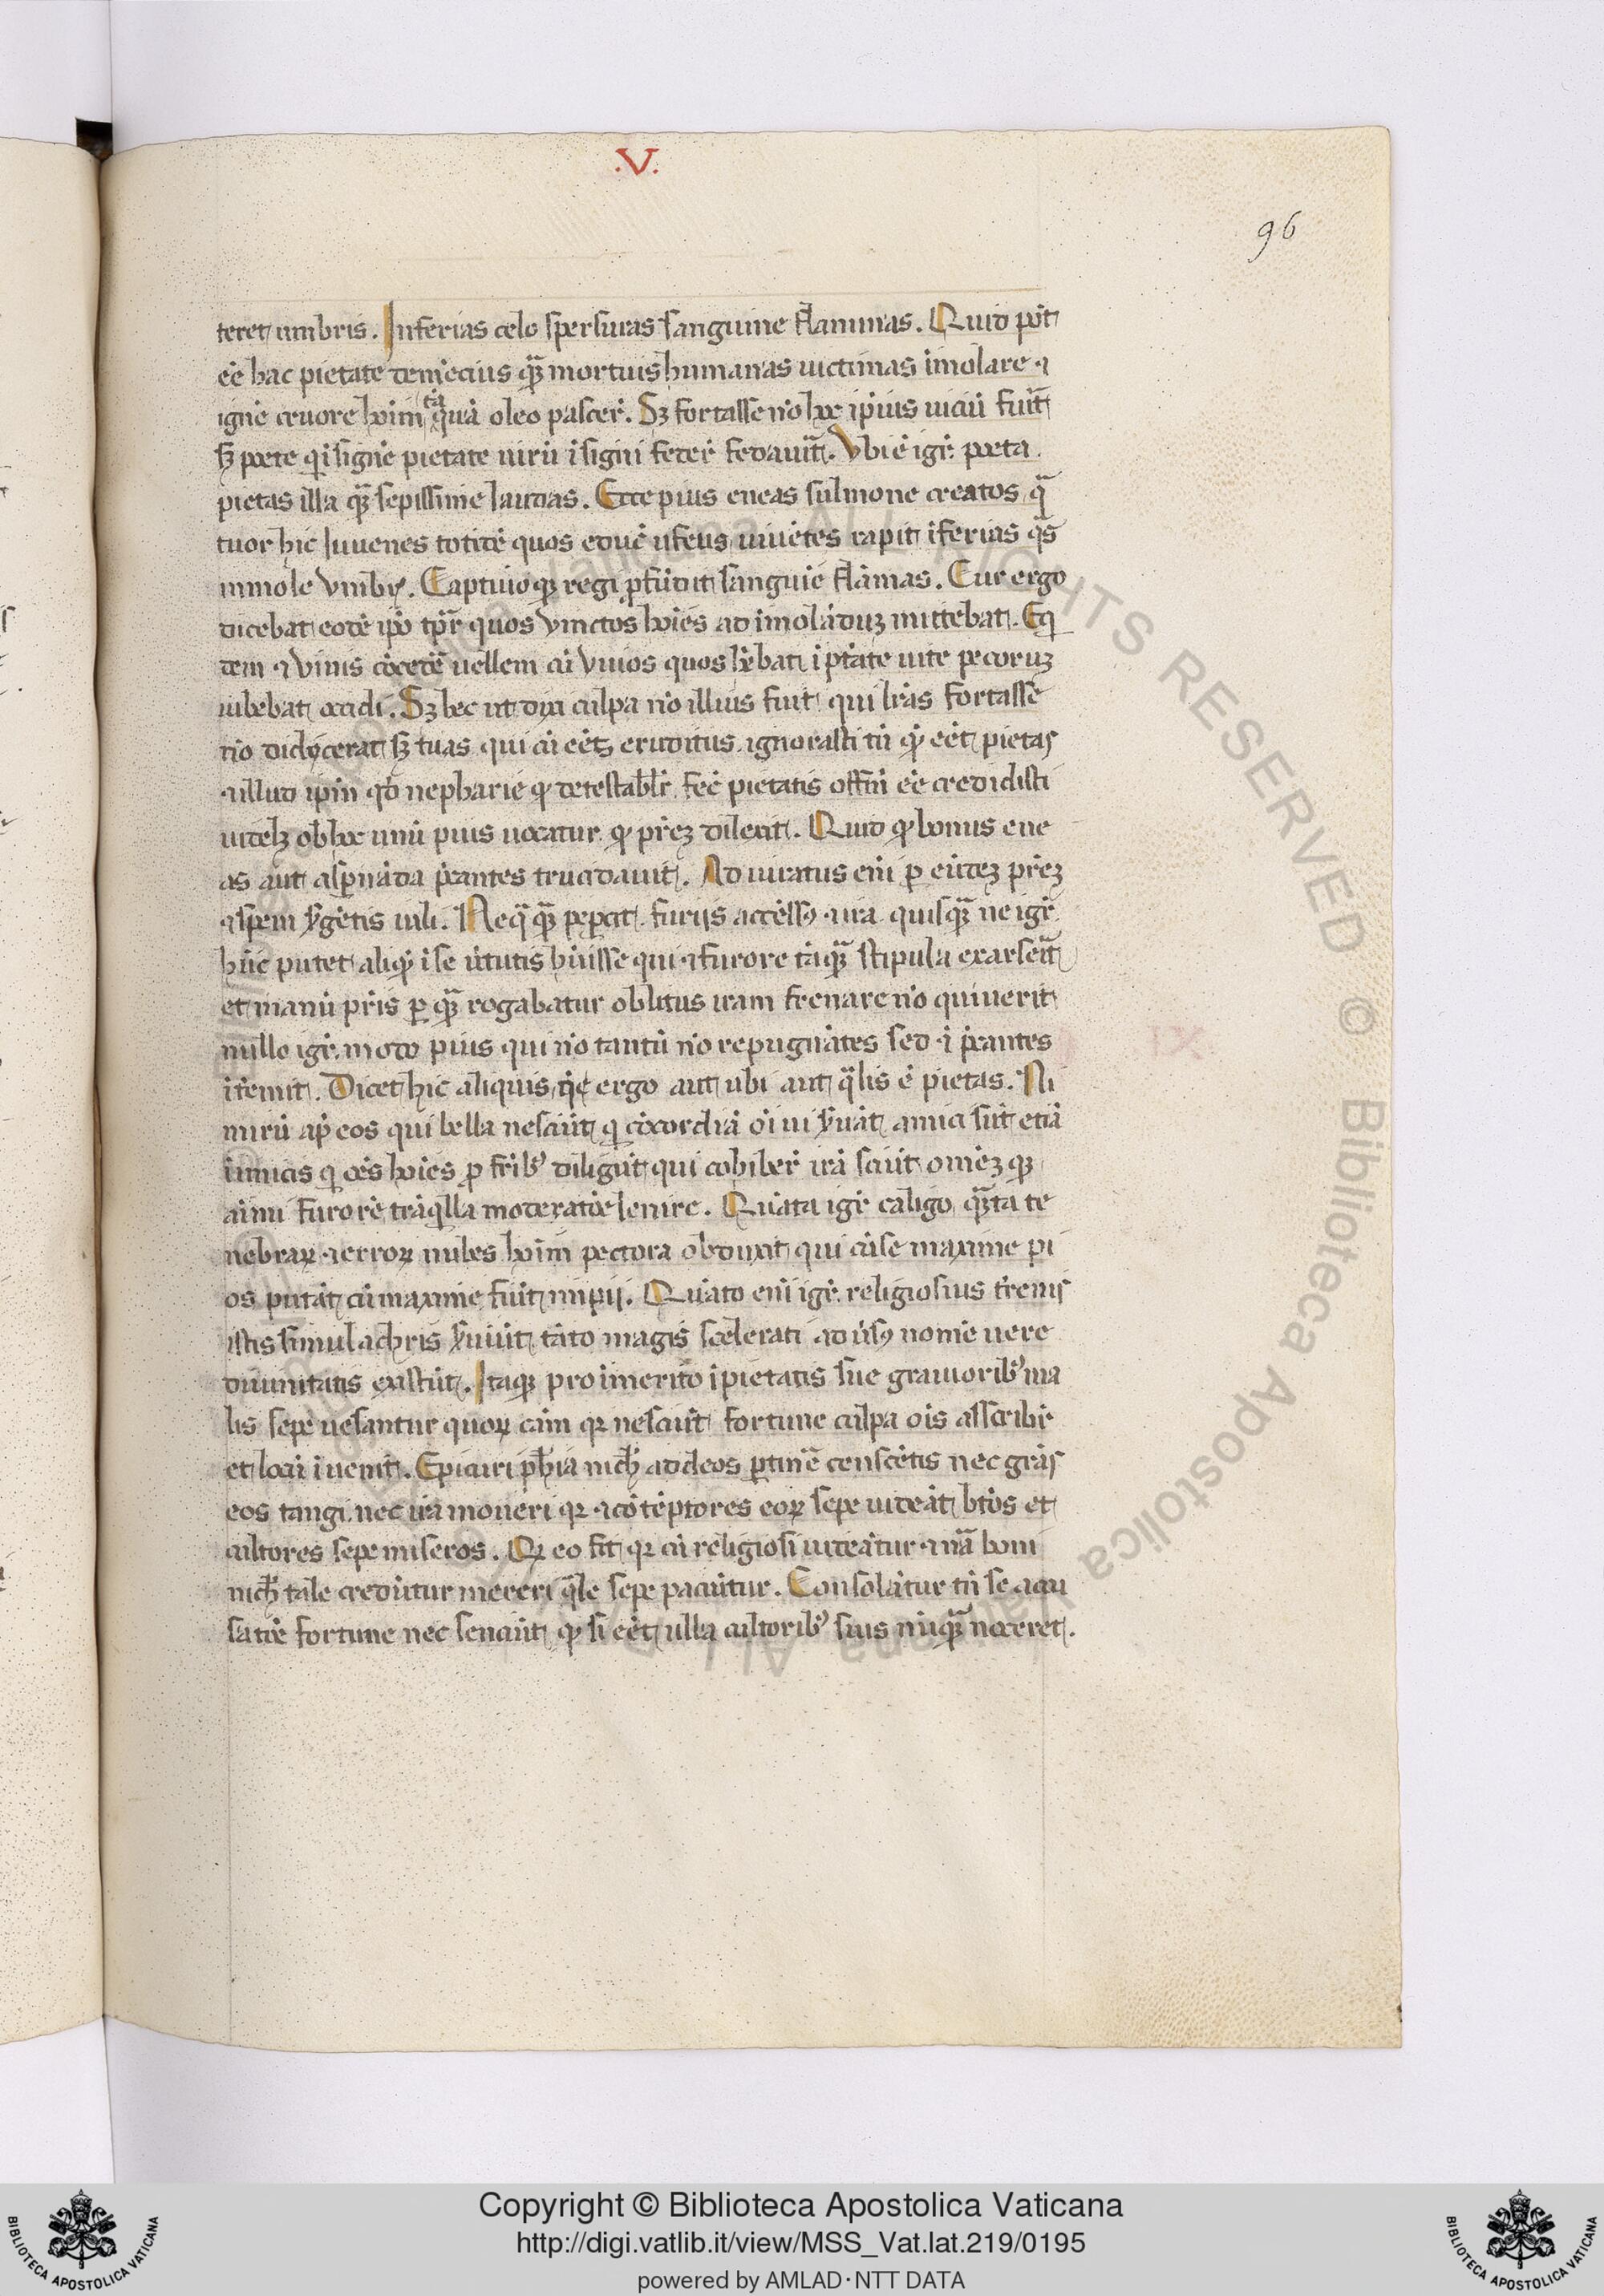 .V.
96
teret umbris. Inferias celo spersuras sanguine flammas. Quid pōt
eē hac pietate demēcius q̄ꝫ mortuis humanas uictimas īmolare ⁊
ignē cruore hoīm tā q̄uā oleo pascer̄. Sꝫ fortasse nō hoc ip̄ius uiciū fuit̄
sꝫ poete q̄ īsignē pietate uirū īsigni feder̄ fedauit̄. Vbi ē igr̄ poeta
pietas illa q̄ꝫ sepissime laudas. Ecce pius eneas sulmone creatos q̄
tuor hic Iuuenes totidē quos educē ufens uiuētes rapit īferias q̄s
inmole Vmbꝝ. Captiuoqꝫ regi ꝓfūdit sanguiē flāmas. Cur ergo
dicebat eodē ip̄o tp̄r̄ quos Vinctos hoīes ad īmolāduꝫ mittebat. Eq
dem ⁊ Viuis cōcedē uellem cū Viuos quos hēbat ī ptāte uite pecoruꝫ
iubebat occidi. Sꝫ hec ut dixi culpa nō illius fuit qui lr̄as fortasse
nō didycerat sꝫ tuas qui cū eētꝫ eruditus ignorasti tn̄ qꝫ eēt pietas
⁊ illud ip̄m qd̄ nepharie qꝫ detestabl̄r fec̄ pietatis offm̄ eē credidisti
uidelꝫ ob hoc unū pius uocatur qꝫ pr̄eꝫ dilexit. Quid qꝫ bonus ene
as aut asp̄nāda p̄cantes trucidauit. Adiuratus eni ꝑ eūdeꝫ pr̄eꝫ
⁊ spem s̄gētis iuli. Neq̄q̄ꝫ pepcit furijs accēsꝯ ⁊ ira quisq̄ꝫ ne igr̄
hūc putet aliqꝫ ī se ūtutis hūisse qui ⁊ furore tāq̄ꝫ stipula exarserit̄
et manū pr̄is ꝑ q̄ꝫ rogabatur oblitus iram frenare nō quiuerit
nullo igr̄ modo pius qui nō tantū nō repugnātes sed ⁊ ī p̄cantes
īt̄emit. Dicet hic aliquis q̄e ergo aut ubi aut q̄lis ē pietas. Ni
mirū ap̄ eos qui bella nesciūt q̄ cōcordiā oīi ui s̄uāt amici sūt etiā
īimicis q̄ oēs hoīes ꝓ fr̄ibꝰ diligūt qui cohiber̄ irā sciūt omēꝫ qꝫ
aīmi furorē trāq̄lla moderatōe lenire. Quāta igr̄ caligo q̄ꝫta te
nebraꝝ ⁊ erroꝝ nubes hoīm pectora obduxit qui cū se maxime pi
os putāt cū maxime fiūt impij. Quāto eni igr̄ religiosius t̄renis
istis simulachris s̄uiūt tāto magis scelerati aduˉsꝯ nomē uere
diuinitatis existūt. Itaqꝫ pro īmerito īpietatis sue grauioribꝰ ma
lis sepe uesantur quoꝝ cām qꝛ nesciūt fortune culpa oīs asscribit̄
et locū īuenit. Epicuri ph̄ia nich̄ ad deos ꝑtinē censcētis nec grās
eos tangi nec ira moueri qꝛ ⁊ cōtēptores eoꝝ sepe uideāt btōs et
cultores sepe miseros. Qꝛ eo fit qꝛ cū religiosi uideātur ⁊ nā boni
nich̄ tale credūtur mereri q̄le sepe paciūtur. Consolātur tn̄ se accu
satiōe fortune nec senciūt qꝫ si eēt ulla cultoribꝰ suis nūqꝫ noceret.
IX
Copyright © Biblioteca Apostolica Vaticana
http://digi.vatlib.it/view/MSS_Vat.lat.219/0195
powered by AMLAD·NTT DATA